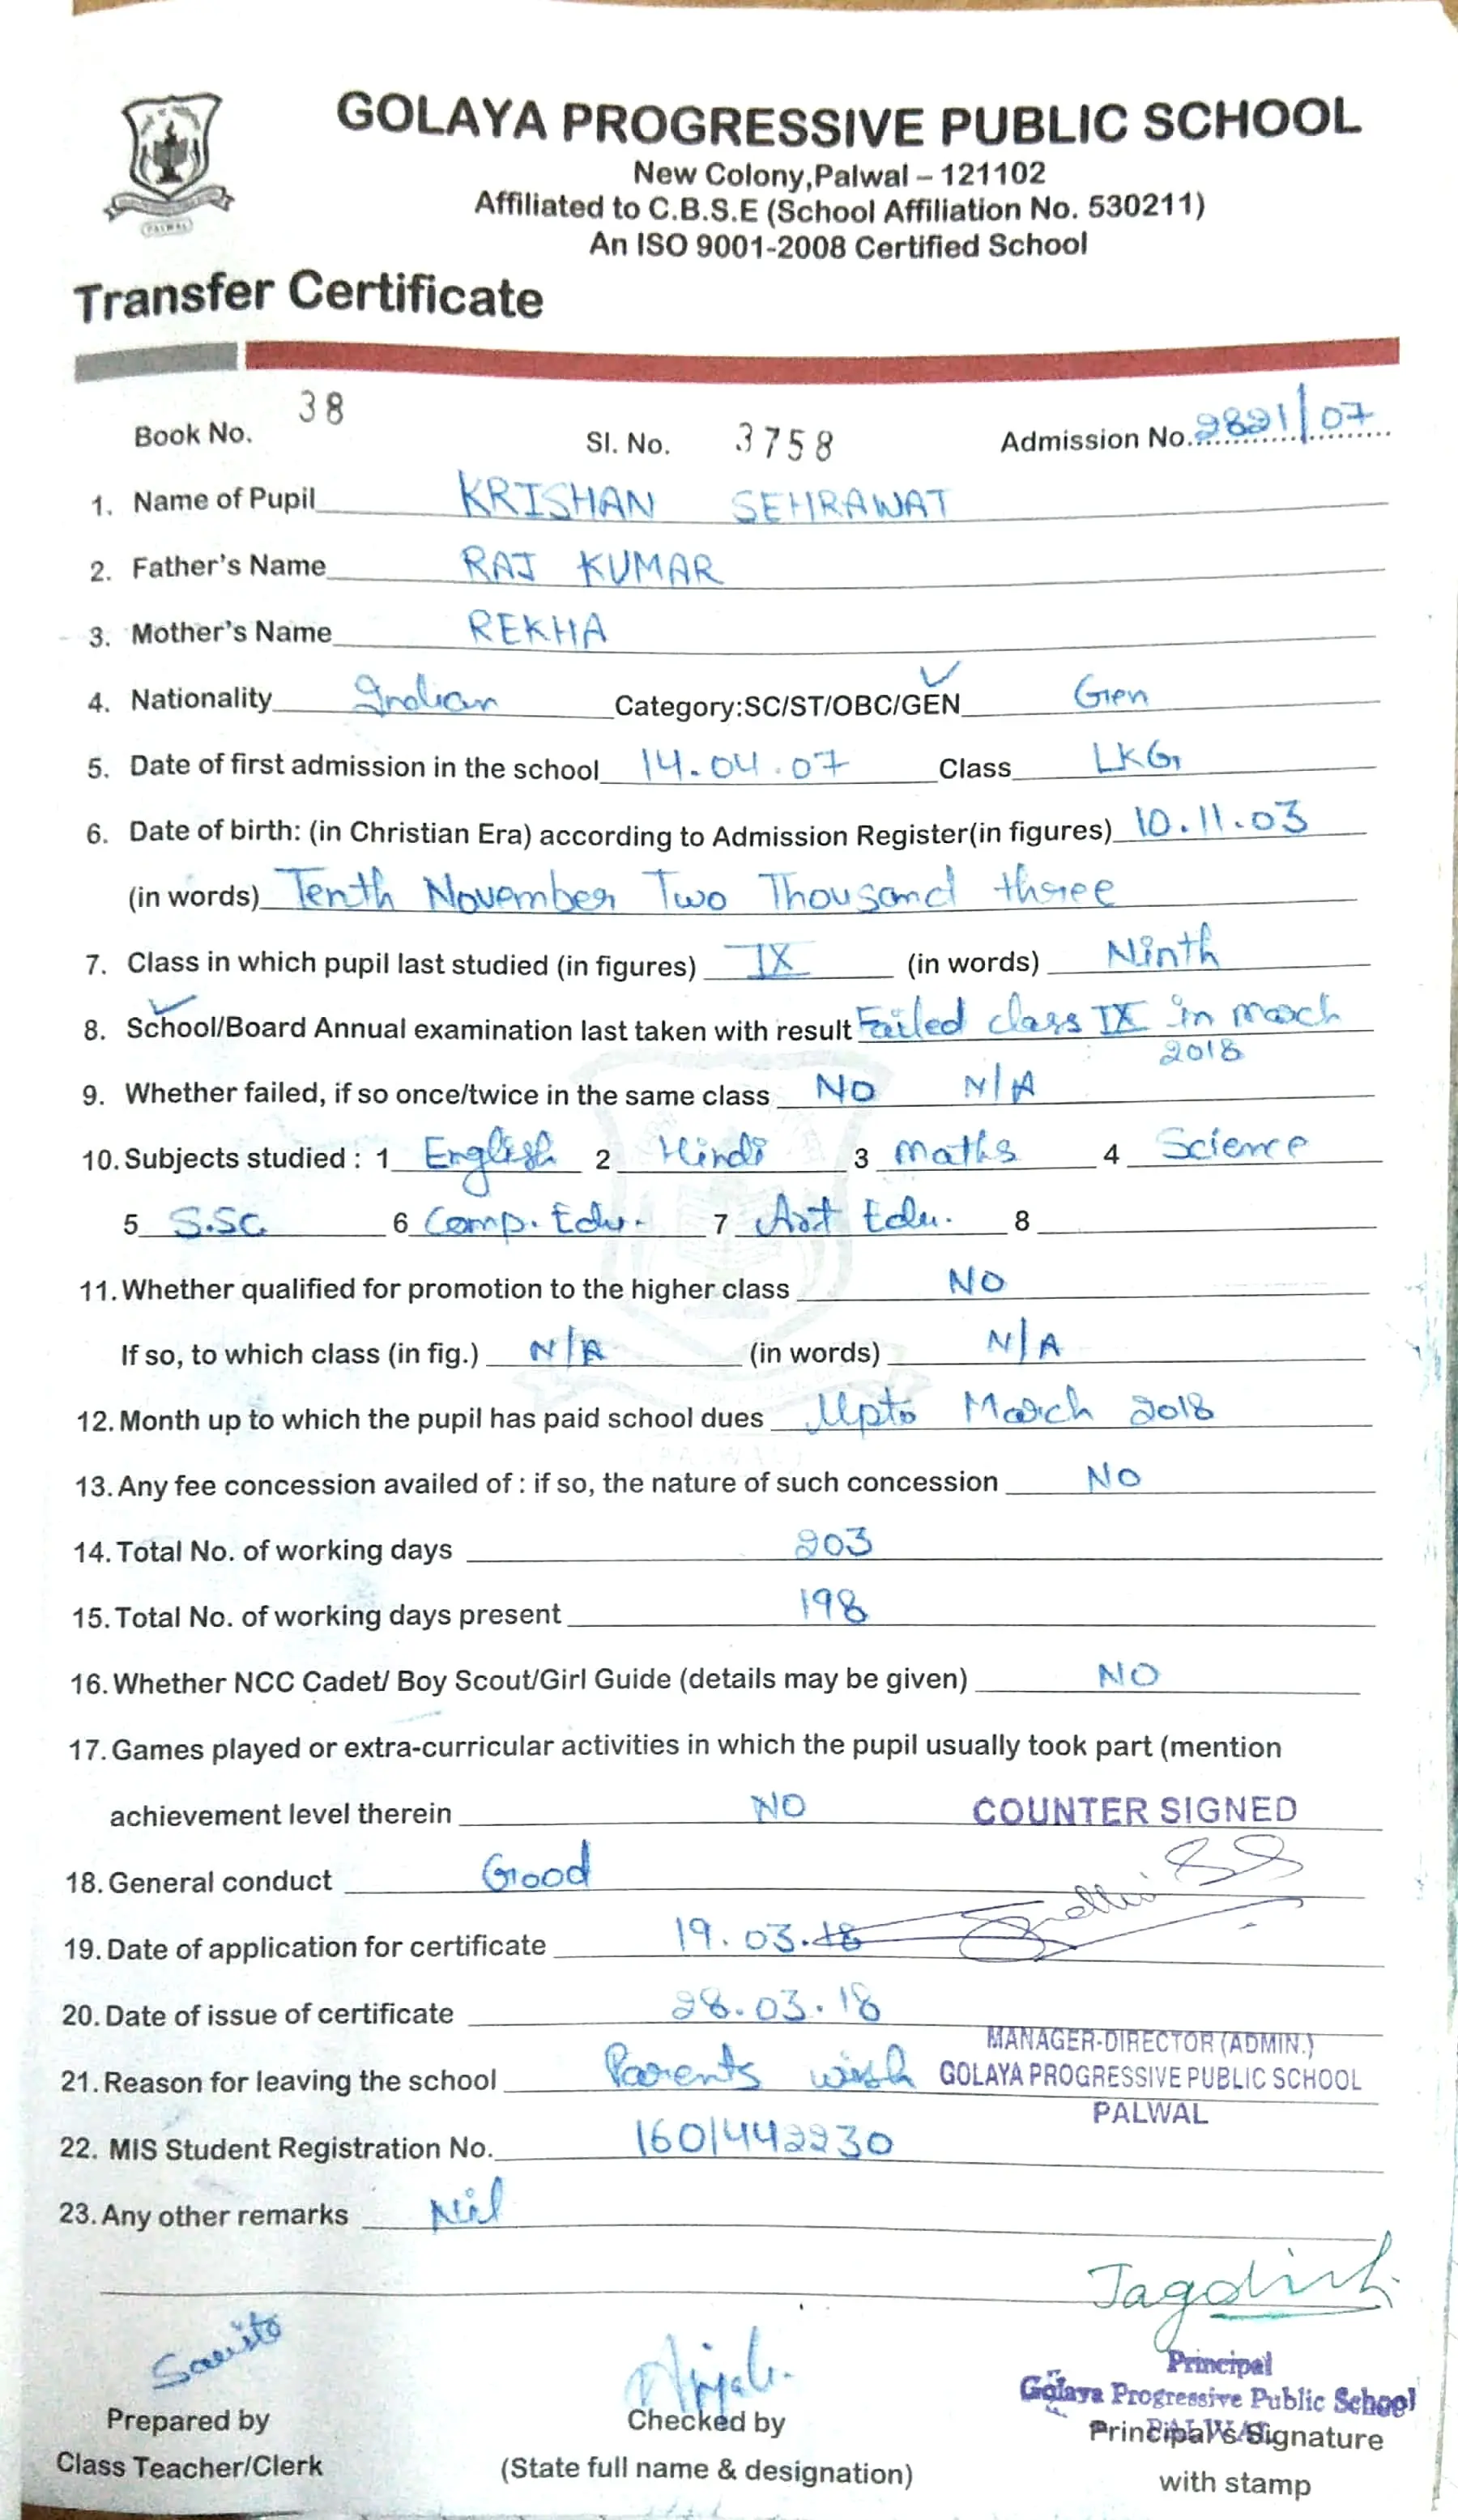 GOLAYA PROGRESSIVE PUBLIC SCHOOL
New Colony,Palwal – 121102
Affiliated to C.B.S.E (School Affiliation No. 530211)
An ISO 9001-2008 Certified School
PALWAL
Transfer Certificate
Book No. 38 Sl. No. 3758 Admission No. 2821/07
1. Name of Pupil KRISHAN SEHRAWAT
2. Father's Name RAJ KUMAR
3. Mother's Name REKHA
4. Nationality Indian Category:SC/ST/OBC/GEN Gen
5. Date of first admission in the school 14.04.07 Class LKG
6. Date of birth: (in Christian Era) according to Admission Register(in figures) 10.11.03
(in words) Tenth November Two Thousand three
7. Class in which pupil last studied (in figures) IX (in words) Ninth
8. School/Board Annual examination last taken with result Failed class IX in march
2018
9. Whether failed, if so once/twice in the same class NO N/A
10. Subjects studied : 1 English 2 Hindi 3 Maths 4 Science
5 S.Sc. 6 Comp. Edu. 7 Art Edu. 8
11. Whether qualified for promotion to the higher class NO
If so, to which class (in fig.) N/A (in words) N/A
12. Month up to which the pupil has paid school dues Upto March 2018
13. Any fee concession availed of : if so, the nature of such concession NO
14. Total No. of working days 203
15. Total No. of working days present 198
16. Whether NCC Cadet/ Boy Scout/Girl Guide (details may be given) NO
17. Games played or extra-curricular activities in which the pupil usually took part (mention
achievement level therein NO COUNTER SIGNED
18. General conduct Good
19. Date of application for certificate 19.03.18
20. Date of issue of certificate 28.03.18
MANAGER-DIRECTOR (ADMIN.)
21. Reason for leaving the school Parents wish GOLAYA PROGRESSIVE PUBLIC SCHOOL
PALWAL
22. MIS Student Registration No. 1601442230
23. Any other remarks Nil
Jagdish
Savita
Principal
Golaya Progressive Public School
PALWAL
Prepared by Checked by Principal's Signature
Class Teacher/Clerk (State full name & designation) with stamp